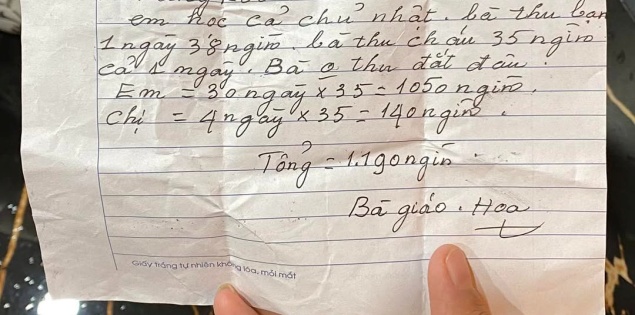 em học cả chủ nhật. bà thu bạn
1 ngày 38 ngìn. bà thu cháu 35 ngìn
cả 1 ngày. Bà o thu đắt đâu.
Em = 30 ngày x 35 = 1050 ngìn.
Chị = 4 ngày x 35 = 140 ngìn.
Tổng = 1.190 ngìn.
Bà giáo. Hoa
Giấy trắng tự nhiên không lóa, mỏi mắt